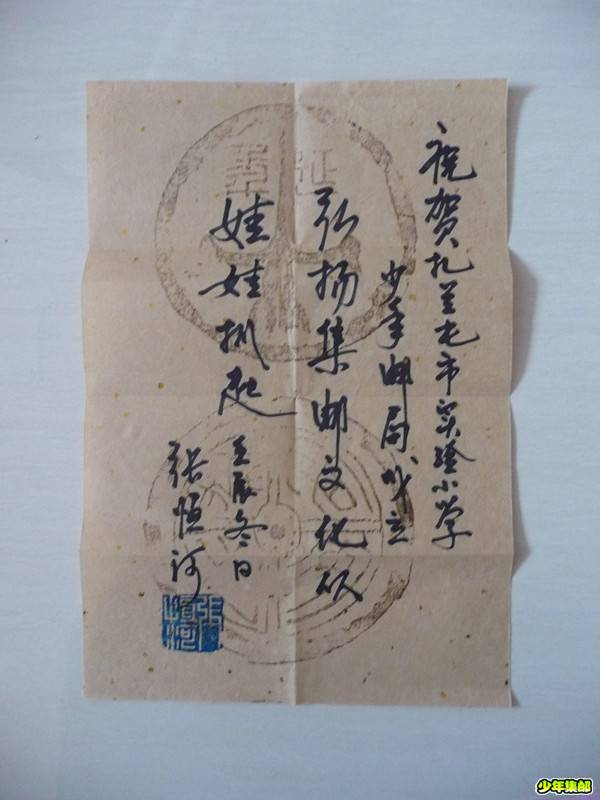 祝贺扎兰屯市实验小学
少年邮局成立
弘扬集邮文化从
娃娃抓起
壬辰冬日
张恒河
少年集邮